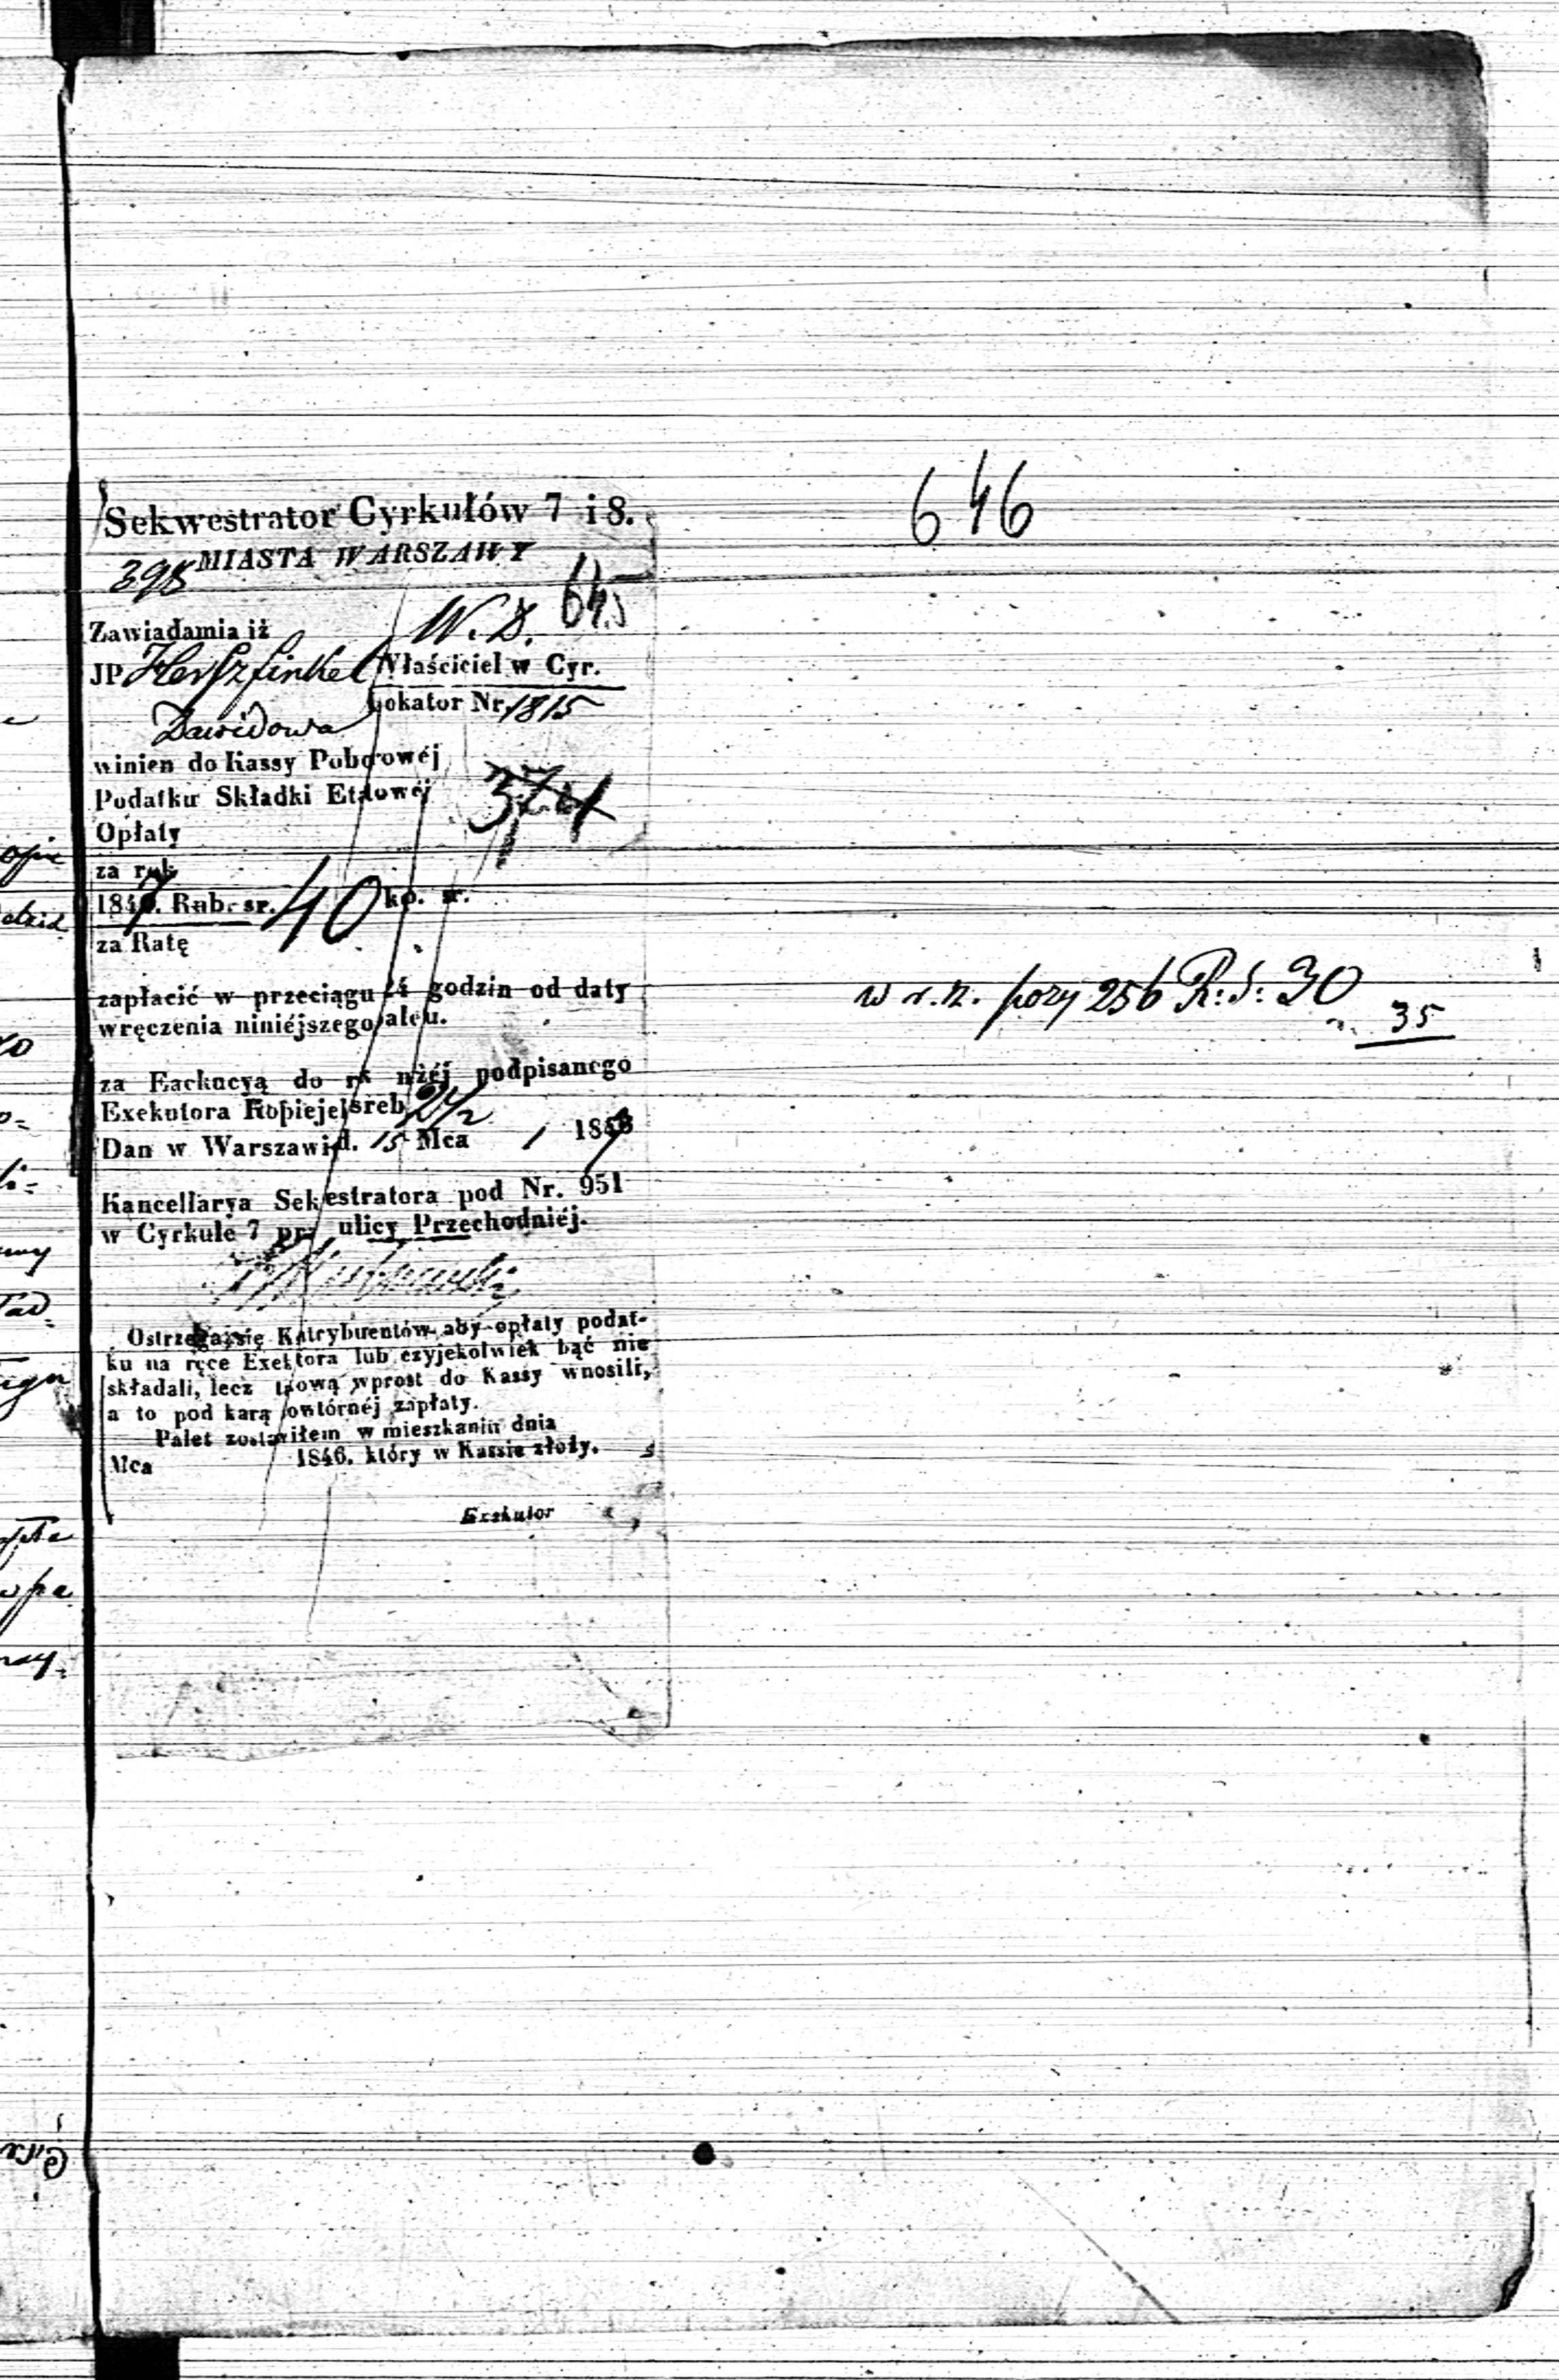 646
Sekwestrator Cyrkułów 7 i 8.
MIASTA WARSZAWY
398
645
Zawiadamia iż W. D.
JP Herszfinkel Właściciel w Cyr.
Dawidowa Lokator Nr. 1815
winien do Kassy Poborowéj
Podatku Składki Etatowéj
Opłaty
za rok
1847. Rub. sr. 40 ko. sr.
za Ratę
w r. z. pozy 256 R: S: 30
35
zapłacić w przeciągu 24 godzin od daty
wręczenia niniéjszego paletu.
za Exekucyą do rąk niżéj podpisanego
Exekutora Kopiejek sreb. 2 1/2
Dan w Warszawie d. 15 Mca 1 1847
Kancellarya Sekwestratora pod Nr. 951
w Cyrkule 7 przy ulicy Przechodniéj.
Ostrzega się Kontrybuentów aby opłaty podat-
ku na ręce Exekutora lub czyjekolwiek bąć nie
składali, lecz takową wprost do Kassy wnosili,
a to pod karą powtórnéj zapłaty.
Palet zostawiłem w mieszkaniu dnia
Mca 1846. który w Kassie złoży.
Exekutor